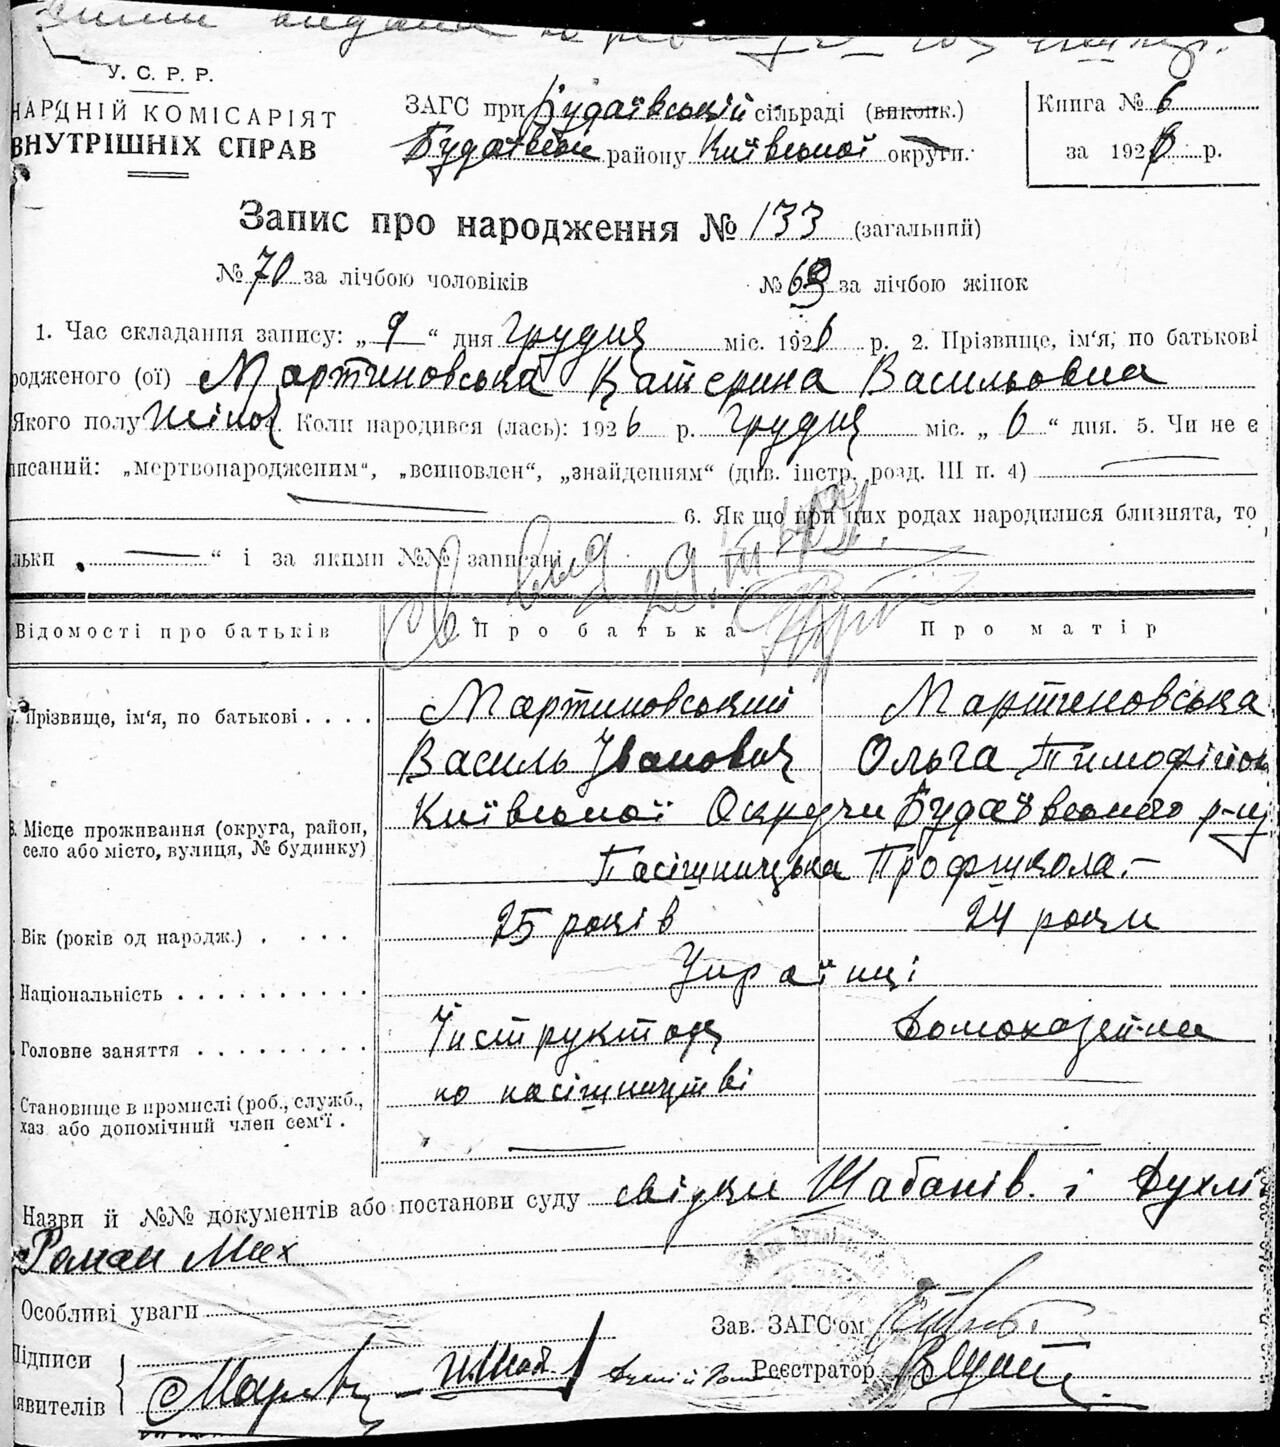 У. С. Р. Р.
НАРДНІЙ КОМІСАРІЯТ
ВНУТРІШНІХ СПРАВ
ЗАГС при Будаївській сільраді (виконк.)
Будаївськ району Київської округи.
Книга № 6
за 1926 р.
Запис про народження № 133 (загальний)
№ 70 за лічбою чоловіків № 63 за лічбою жінок
1. Час складання запису: „ 9 “ дня грудня міс. 1926 р. 2. Прізвище, ім'я, по батькові
родженого (ої) Мартиновська Катерина Васильовна
Якого полу жіноч. Коли народився (лась): 1926 р. грудня міс. „ 6 “ дня. 5. Чи не є
писаний: „мертвонародженим“, „всиновлен“, „знайденням“ (див. інстр. розд. III п. 4)
6. Як що при цих родах народилися близнята, то
льки „ — “ і за якими №№ записані
Відомості про батьків Про батька Про матір
Прізвище, ім'я, по батькові . . . . Мартиновський Мартиновська
Василь Іванович Ольга Тимофіїов
Місце проживання (округа, район, Київської Округи Будаївського р-ну
село або місто, вулиця, № будинку)
Пасішницька Профшкола.—
Вік (років од народж.) . . . . 25 років 24 роки
Національність . . . . . . . . . . Українці
Головне заняття . . . . . . . . . Інструктор Домохазяйка
по пасішництві
Становище в промислі (роб., служб.,
хаз або допомічний член сем'ї .
Назви й №№ документів або постанови суду свідки Шабанів. і Духлі
Роман Мих
Особливі уваги
Зав. ЗАГС'ом
Підписи
Реєстратор
явителів